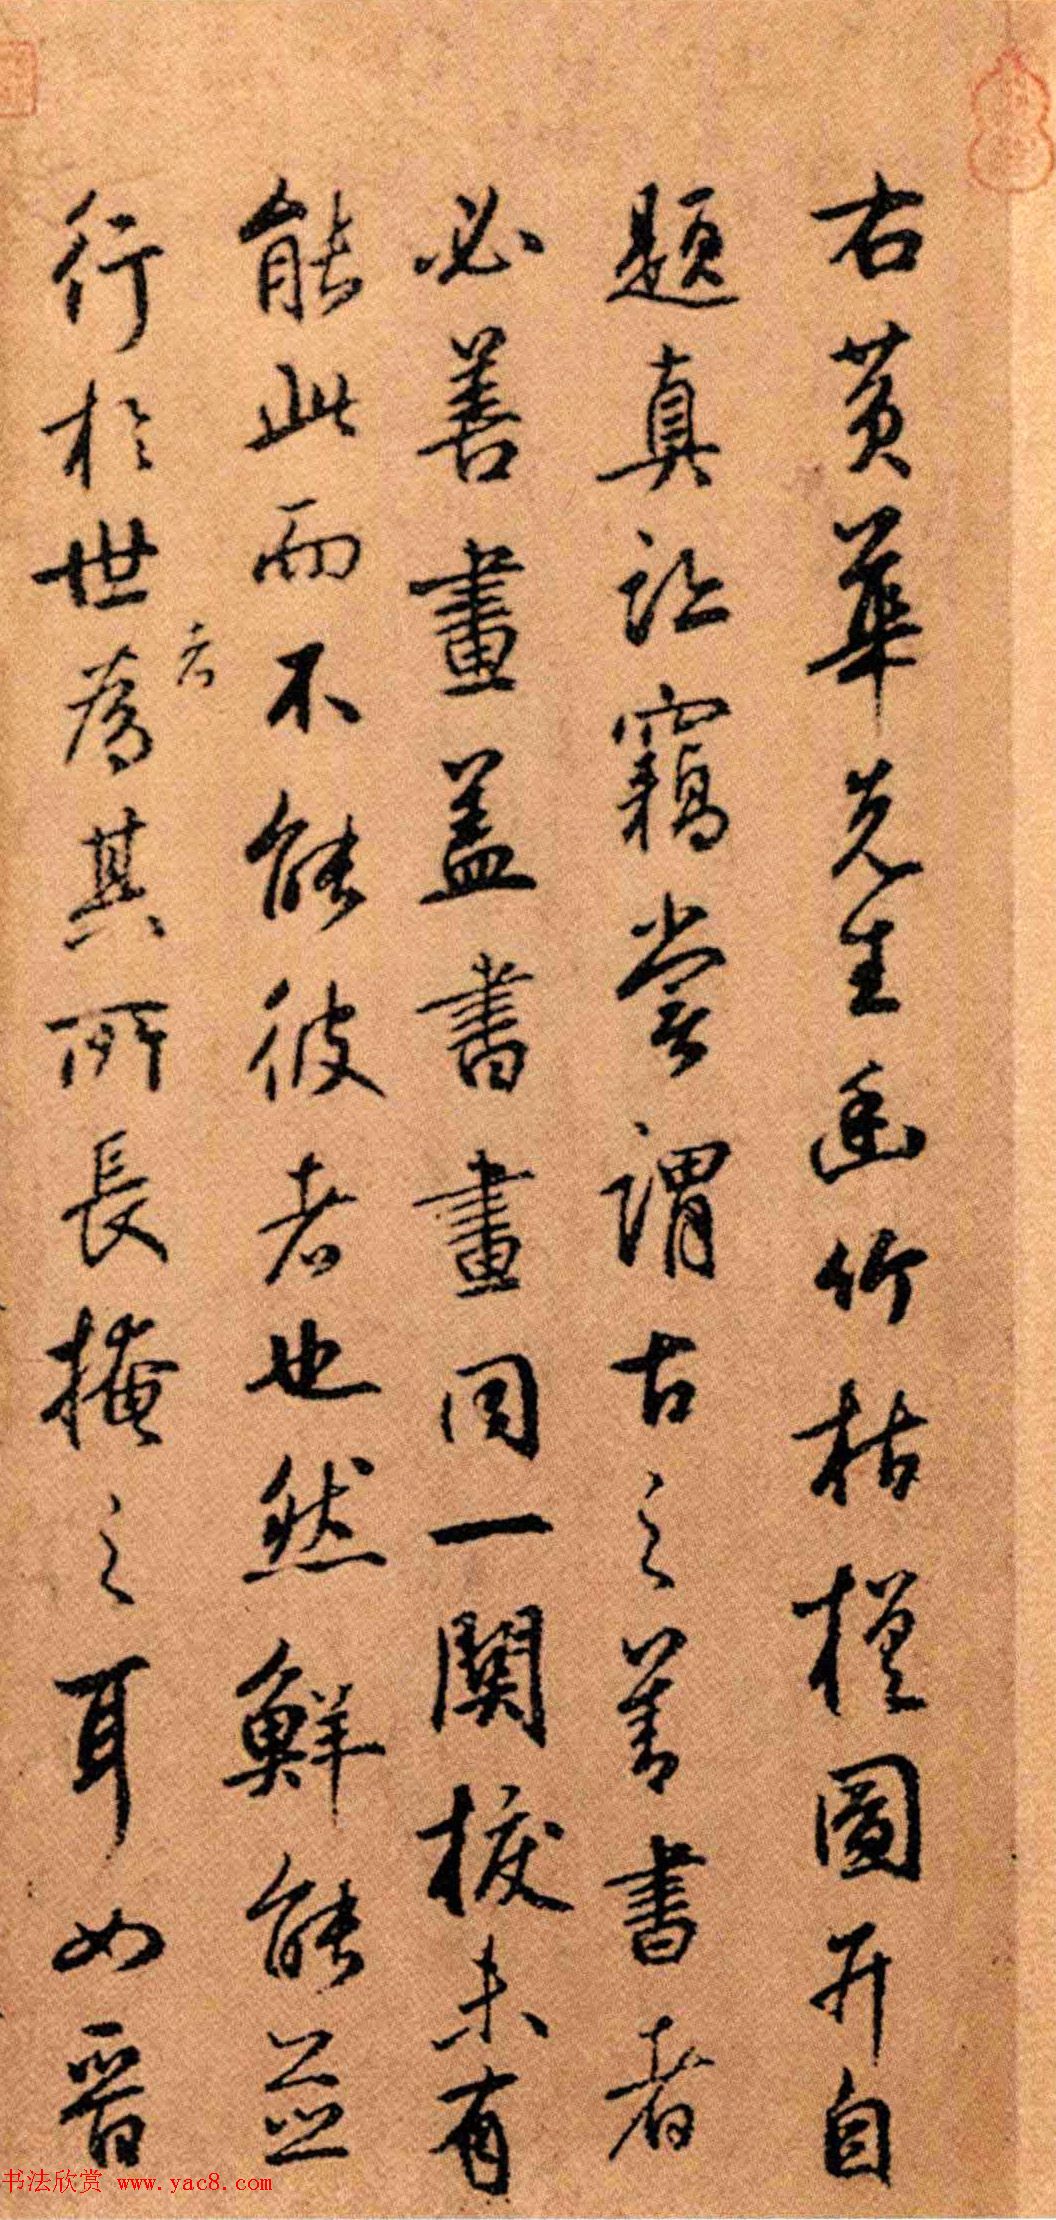 右黃華先生幽竹枯槎圖并自
題真跡竊嘗謂古之善書者
必善畫蓋書畫同一關捩未有
能此而不能彼者也然鮮能並
行於世者為其所長掩之耳如晉
书法欣赏 www.yac8.com